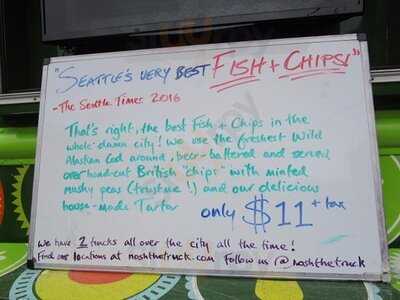 "SEATTLE'S VERY BEST FISH + CHIPS!"
- The Seattle Times 2016
That's right, the best Fish + Chips in the
whole damn city! We use the freshest Wild
Alaskan Cod around, beer-battered and served
over hand-cut British "chips" with minted
mushy peas (trust me!) and our delicious
house-made Tartar
only $11 + tax
We have 2 trucks all over the city all the time!
Find our locations at noshthetruck.com Follow us @noshthetruck